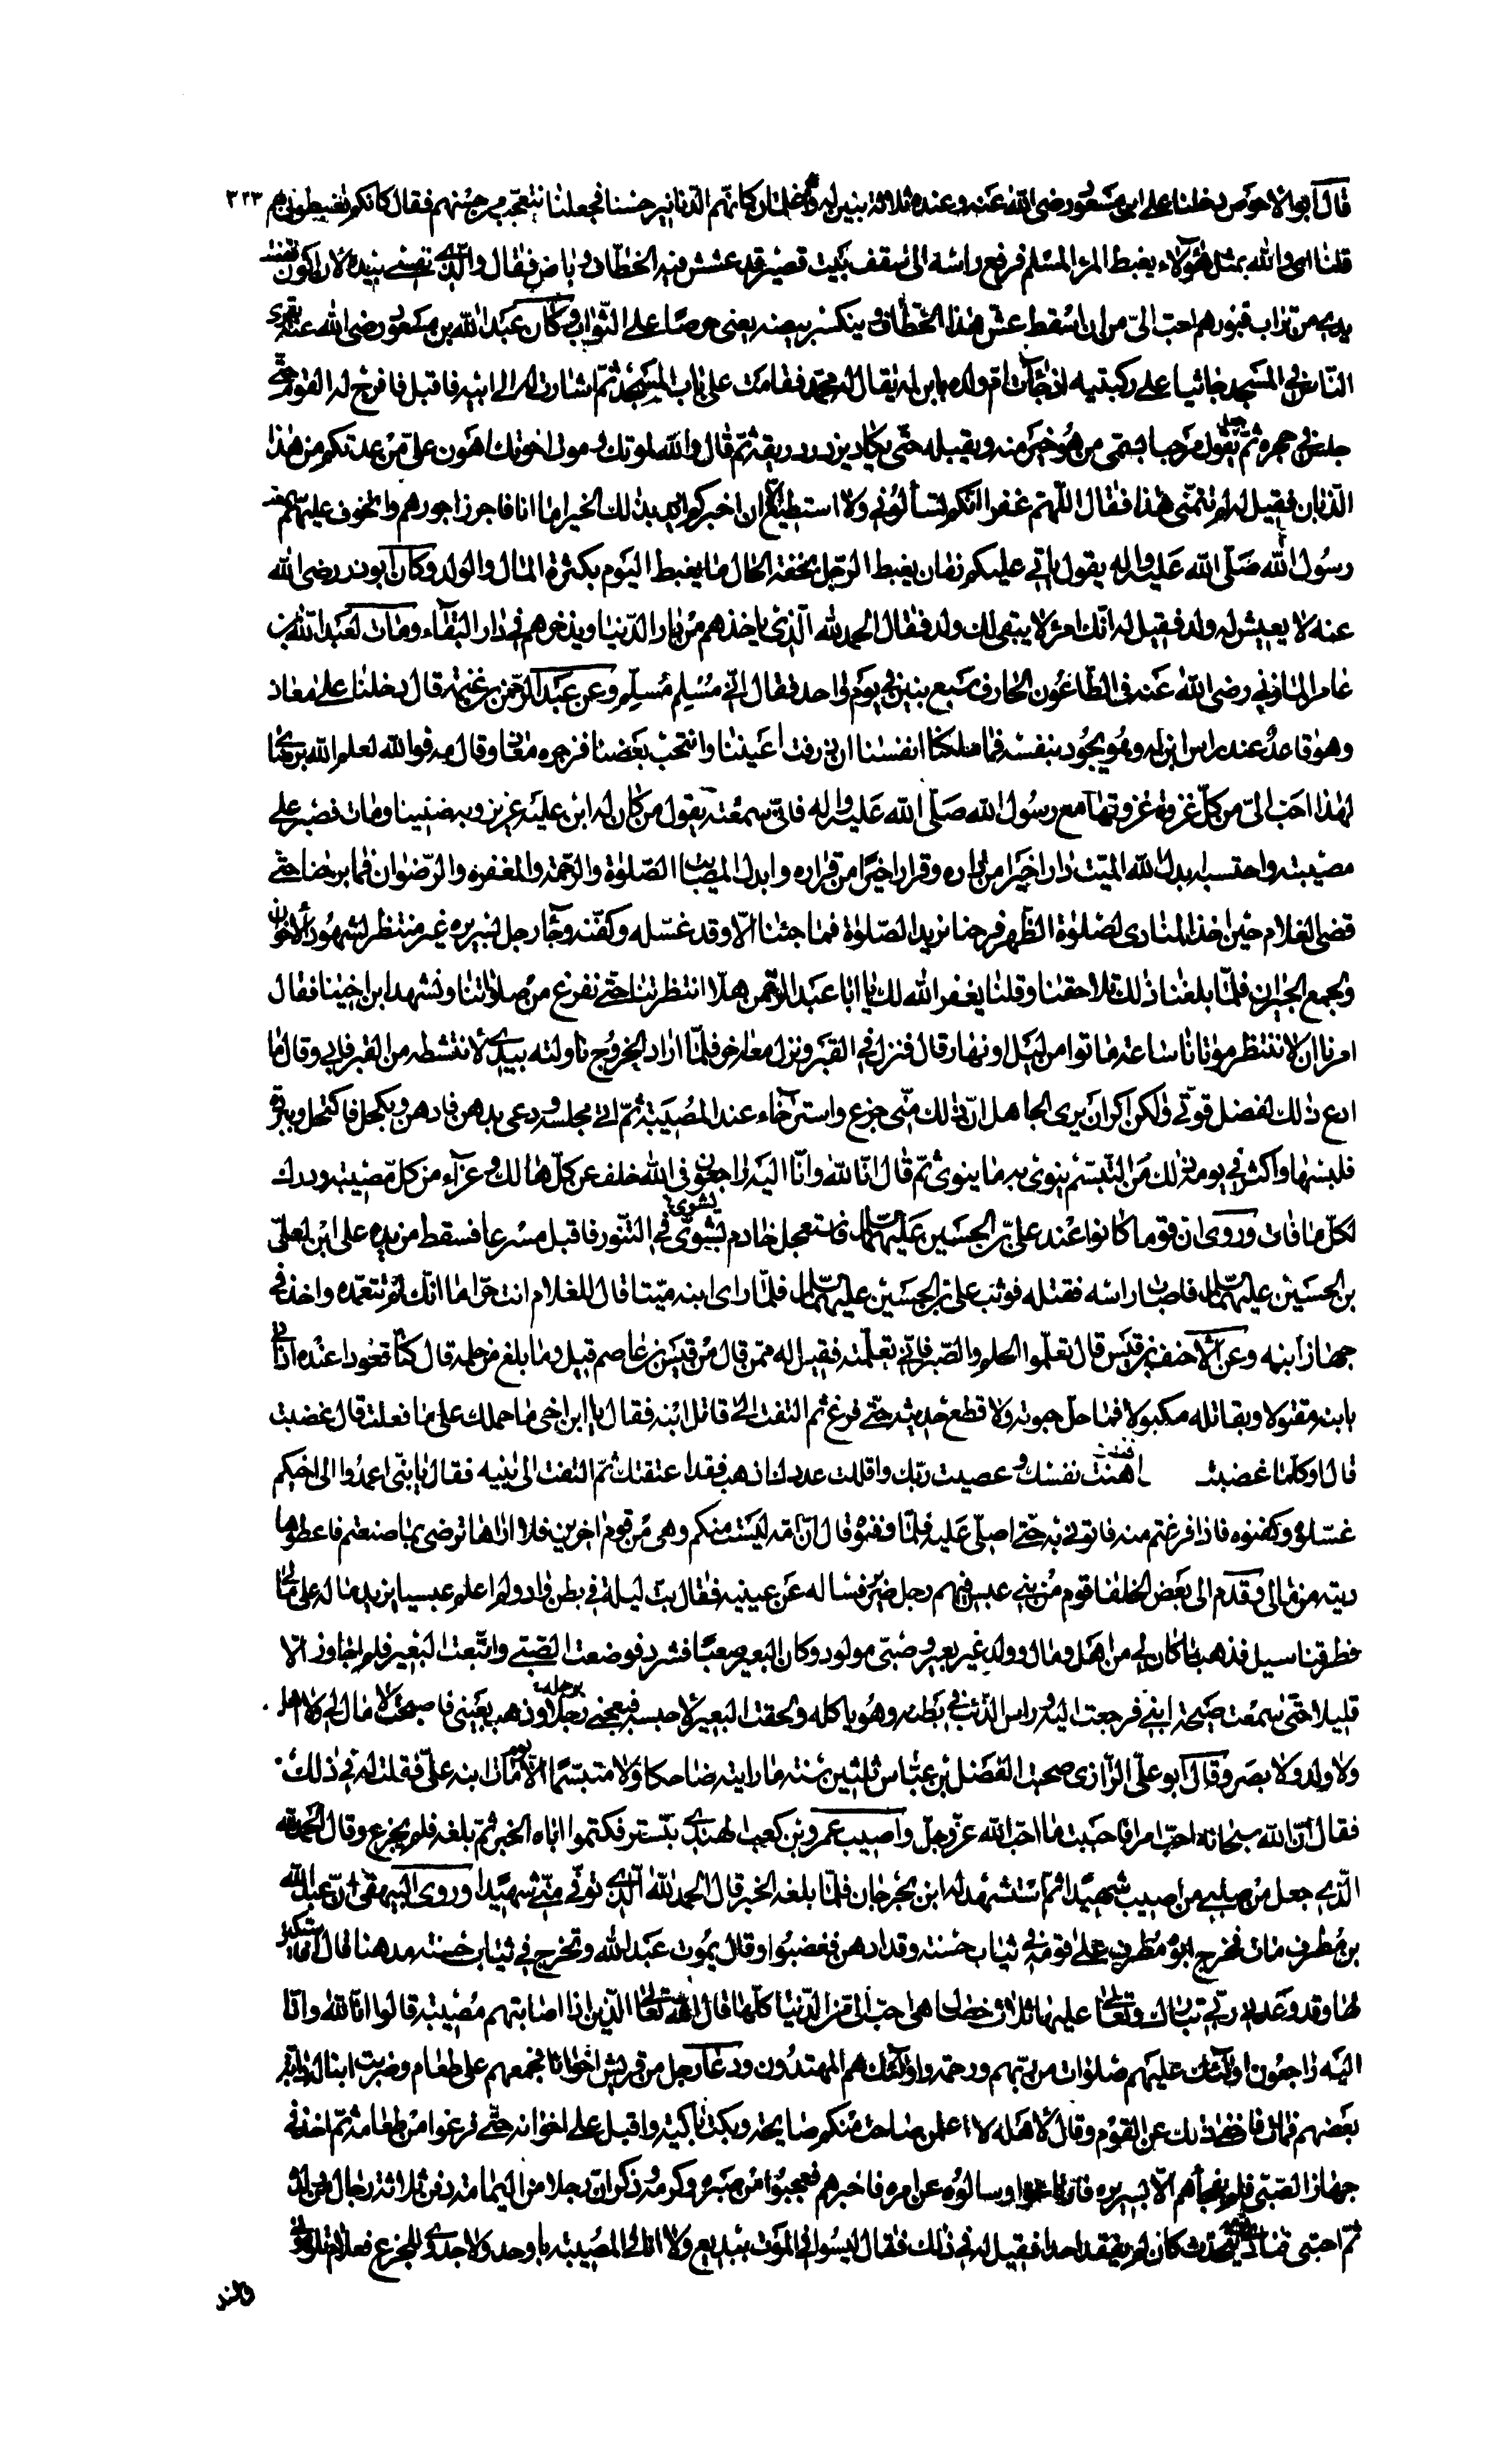 قال ابو الاحوص دخلنا على ابن مسعود رضى الله عنه وعنده ثلاثة بنين له غلمان كانهم الدنانير حسنا فجعلنا نتعجب من حسنهم فقال كانكم تغبطونى بهم ٣٢٣
قلنا اى والله بمثل هؤلاء يغبط المرء المسلم فرفع راسه الى سقف بيت قصير قد عشش فيه الخطاف وباض فقال والذى نفسى بيده لان اكون نفضت
يدى من تراب قبورهم احب الىّ من ان اسقط عش هذا الخطاف وينكسر بيضه يعنى حرصا على الثواب وكان عبد الله بن مسعود رضى الله عنه يقرى
الناس فى المسجد جاثيا على ركبتيه اذ جاءت ام ولده بابن له يقال له محمد فقامت على باب المسجد ثم اشارت له الى ابيه فاقبل فافرج له القوم حتى
جلس فى حجره ثم جعل يقول مرحبا بسمى من هو خير منه ويقبله حتى يكاد يزدرد ريقه ثم قال والله لموتك وموت اخوتك اهون علىّ من عدتكم من هذا
الذبان فقيل له لم تتمنى هذا فقال اللهم غفرا انكم تسألونى ولا استطيع الا ان اخبركم اريد بذلك الخير اما انا فاحرز اجورهم واتخوف عليهم سمعت
رسول الله صلى الله عليه واله يقول ياتى عليكم زمان يغبط الرجل بخفة الحال كما يغبط اليوم بكثرة المال والولد وكان ابو ذر رضى الله
عنه لا يعيش له ولد فقيل له انك امرؤ لا يبقى لك ولد فقال الحمد لله الذى ياخذهم من دار الدنيا ويذخرهم فى دار البقاء ومات لعبد الله بن
عامر المازنى رضى الله عنه فى الطاعون الجارف سبع بنين فى يوم واحد فقال انى مسلم مسلّم وعن عبد الرحمن بن غنم قال دخلنا على معاذ
وهو قاعد عند راس ابن له وهو يجود بنفسه فما ملكنا انفسنا ان ذرفت اعيننا وانتحب بعضنا فزجره معاذ وقال مه فوالله ليعلم الله برضائى
لهذا احب الىّ من كل غزوة غزوتها مع رسول الله صلى الله عليه واله فانى سمعته يقول من كان له ابن عليه عزيز وبه ضنينا ومات فصبر على
مصيبته واحتسبه ابدل الله الميت دارا خيرا من داره وقرارا خيرا من قراره وابدل المصاب الصلوة والرحمة والمغفرة والرضوان فما برحنا حتى
قضى الغلام حين اخذ المنادى لصلوة الظهر فرحنا نريد الصلوة فما جئنا الا وقد غسله وكفنه وجاء رجل بسريره غير منتظر لشهود الاخوان
ولجمع الجيران فلما بلغنا ذلك تلاحقنا وقلنا يغفر الله لك يا ابا عبد الرحمن هلا انتظرتنا حتى نفرغ من صلواتنا ونشهد ابن اخينا فقال
امرنا ان لا ننتظر موتانا ساعة ماتوا من ليل او نهار قال فنزل فى القبر ونزل معه اخر فلما اراد الخروج ناولته بيدى لانتشطه من القبر فابى وقال ما
ادع ذلك لفضل قوتى ولكن اكره ان يرى الجاهل ان ذلك منى جزع واسترخاء عند المصيبة ثم اتى مجلسه ودعى بدهن فادهن وبكحل فاكتحل وببردة
فلبسها واكثر فى يومه ذلك من التبسم ينوى به ما ينوى ثم قال انا لله وانا اليه راجعون فى الله خلف عن كل هالك وعزاء من كل مصيبة ودرك
لكل ما فات وروى ان قوما كانوا عند على بن الحسين عليهما السلام فاستعجل خادم بشوى فى التنور فاقبل مسرعا فسقط من يده على ابن لعلى
بن الحسين عليهما السلام فاصاب راسه فقتله فوثب على بن الحسين عليهما السلام فلما راى ابنه ميتا قال للغلام انت حر اما انك لم تتعمده واخذ فى
جهاز ابنه وعن الاحنف بن قيس قال تعلموا الحلم والصبر فانى تعلمته فقيل له ممن قال من قيس بن عاصم قيل وما بلغ من حلمه قال كنا قعودا عنده اذ اتى
بابنه مقتولا وبقاتله مكبولا فما حل حبوته ولا قطع حديثه حتى فرغ ثم التفت الى قاتل ابنه فقال يا ابن اخى ما حملك على ما فعلت قال غضبت
قال او كلما غضبت اهنت نفسك وعصيت ربك واقللت عددك اذهب فقد اعتقتك ثم التفت الى بنيه فقال يا بنى اعمدوا الى اخيكم
غسلوه وكفنوه فاذا فرغتم منه فاتونى به حتى اصلى عليه فلما دفنوه قال ان امه ليست منكم وهى من قوم اخرين فلا اراها ترضى بما صنعتم فاعطوها
ديته من مالى وقدم الى بعض الخلفا قوم من بنى عبس فيهم رجل ضرير فساله عن عينيه فقال بت ليلة فى بطن واد ولم اعلم عبسيا يزيد ماله على مالى
فطرقنا سيل فذهب بما كان لى من اهل ومال وولد غير بعير وصبى مولود وكان البعير صعبا فشرد فوضعت الصبى واتبعت البعير فلم اجاوز الا
قليلا حتى سمعت صيحة ابنى فرجعت اليه وراس الذئب فى بطنه وهو ياكله ولحقت البعير لاحبسه فبعجنى برجله وذهب بعينى فاصبحت لا مال لى ولا اهل
ولا ولد ولا بصر وقال ابو على الرازى صحبت الفضل بن عباس ثلثين سنة ما رايته ضاحكا ولا متبسما الا يوم مات ابنه على فقلت له فى ذلك
فقال ان الله سبحانه احب امرا فاحببت ما احب الله عز وجل واصيب عمرو بن كعب الهندى بتستر فكتموا اباه الخبر ثم بلغه فلم يجزع وقال الحمد لله
الذى جعل من صلبى من اصيب شهيدا ثم استشهد له ابن بجرجان فلما بلغه الخبر قال الحمد لله الذى توفى منى شهيدا وروى البيهقى ان عبد الله
بن مطرف مات فخرج ابوه مطرف على قومه فى ثياب حسنة وقد ادهن فغضبوا وقال يموت عبد الله وتخرج فى ثياب حسنة مدهنا قال
لها وقد وعدنى ربى تبارك وتعالى عليها ثلاث خصال هى احب الى من الدنيا كلها قال الله تعالى الذين اذا اصابتهم مصيبة قالوا انا لله وانا
اليه راجعون اولئك عليهم صلوات من ربهم ورحمة واولئك هم المهتدون ودعا رجل من قريش اخوانا فجمعهم على طعام وضربت ابنا له دابة
بعضهم فمات فاخفى ذلك عن القوم وقال لاهله لا اعلمن صاحت منكم صايحة وبكت باكية واقبل على اخوانه حتى فرغوا من طعامه ثم اخذ فى
جهاز الصبى فلم يفجأهم الا بسريره فارتاعوا وسالوه عن امره فاخبرهم فعجبوا من صبره وكرمه وذكر ان رجلا من اليمامة دفن ثلاثة رجال من ولده
ثم احتبى فى نادى قومه يتحدث كان لم يفقد احدا فقيل له فى ذلك فقال ليسوا فى الموت ببديع ولا انا فى المصيبة باوحد ولا جدوى للجزع فعلام تلومونى